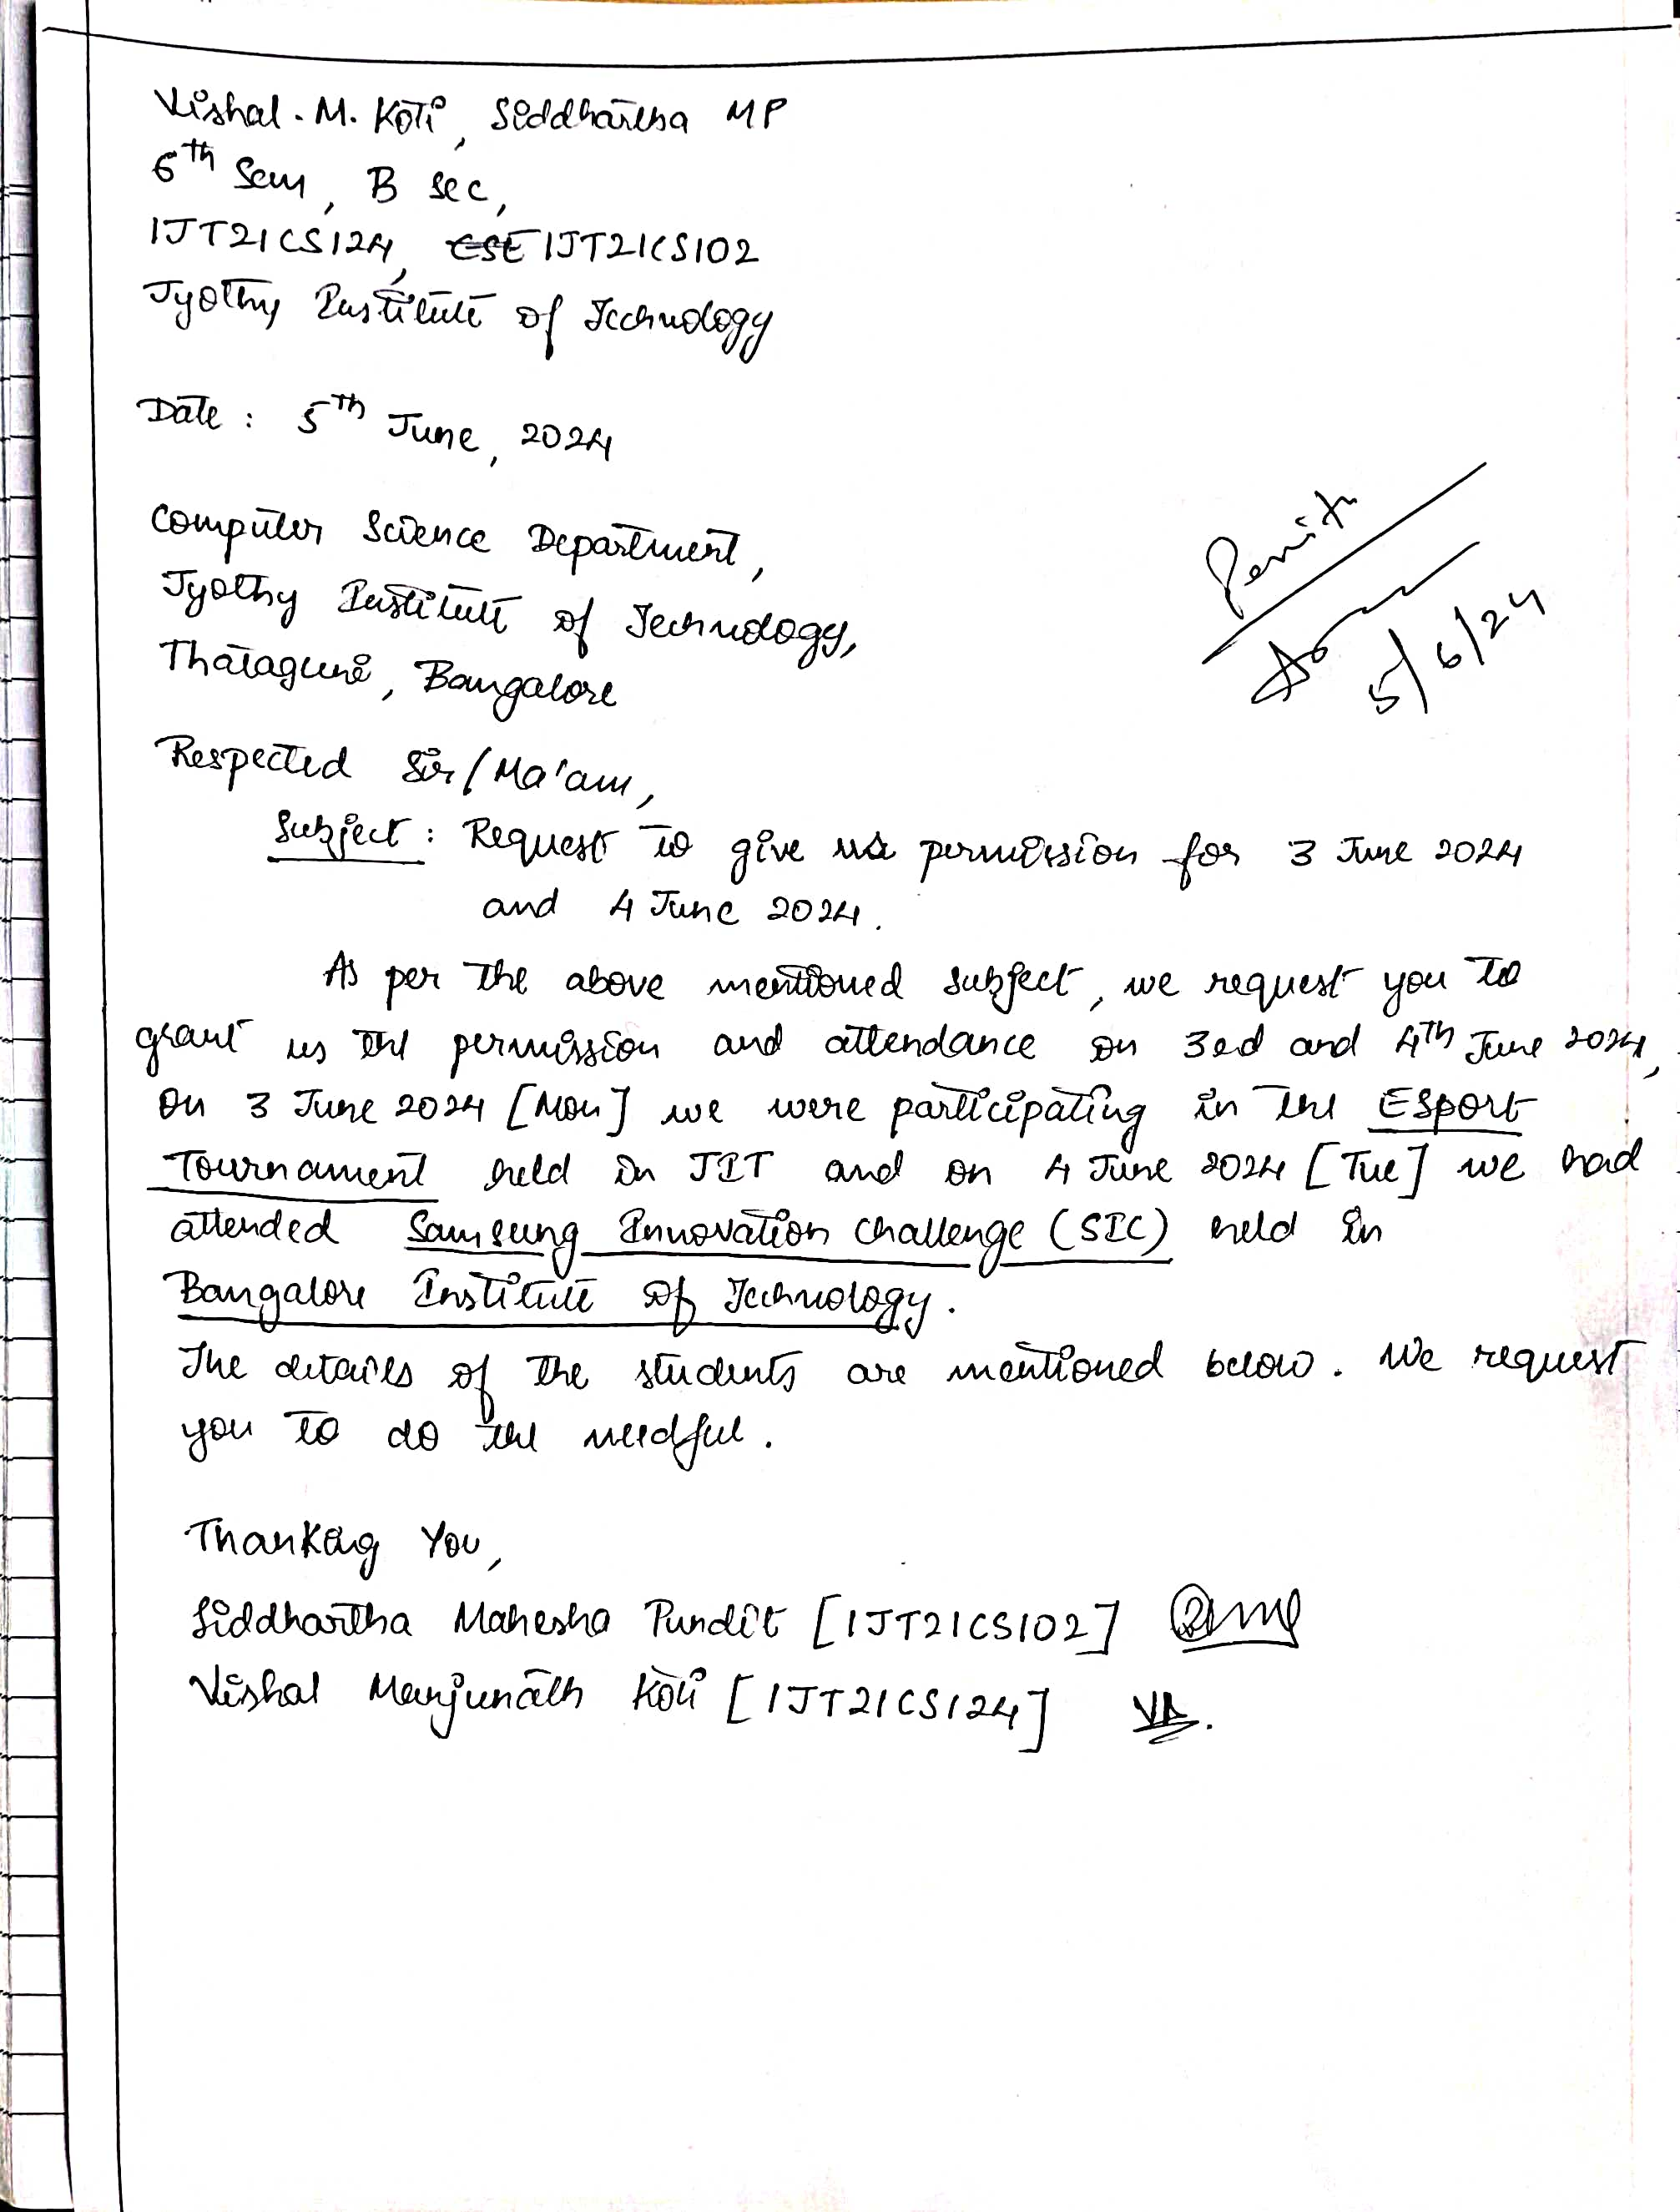 Vishal. M. Koti, Siddhartha MP
6th Sem, B sec,
1JT21CS124, CSE 1JT21CS102
Jyothy Institute of Technology
Date : 5th June, 2024
Computer Science Department,
Jyothy Institute of Technology,
Thataguni, Bangalore
Permitr
5/6/24
Respected Sir/Ma'am,
Subject : Request to give us permission for 3 June 2024
and 4 June 2024.
As per the above mentioned subject, we request you to
grant us the permission and attendance on 3ed and 4th June 2024,
On 3 June 2024 [Mon] we were participating in the ESport
Tournament held in JIT and on 4 June 2024 [Tue] we had
attended Samsung Innovation Challenge (SIC) held in
Bangalore Institute of Technology.
The details of the students are mentioned below. We request
you to do the needful.
Thanking You,
Siddhartha Mahesha Pundit [1JT21CS102]
Vishal Manjunath Koti [1JT21CS124]